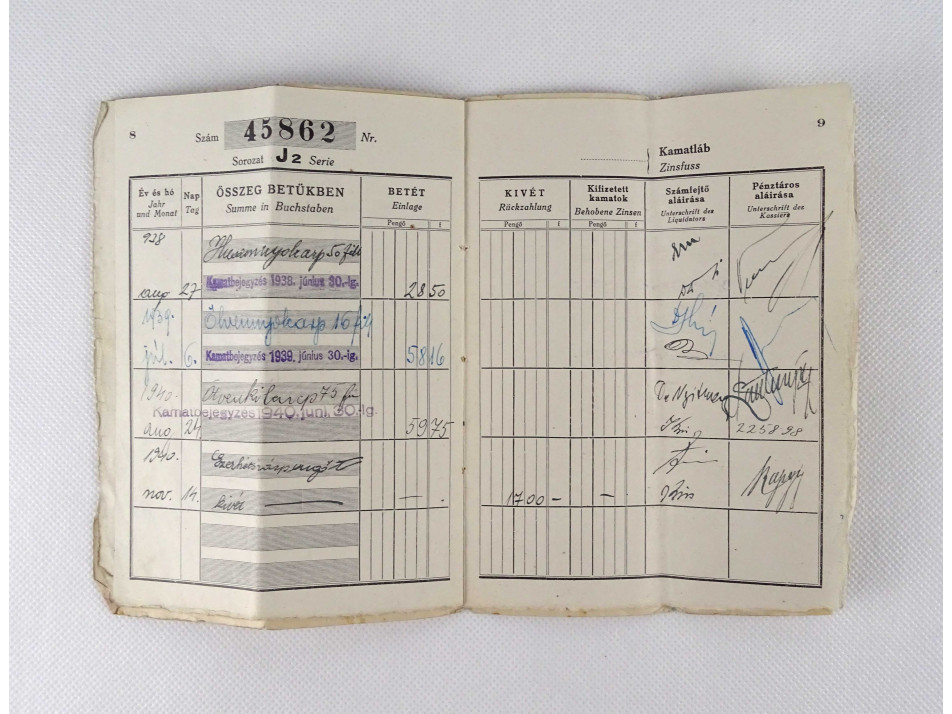 8
Szám 45862 Nr.
Sorozat J2 Serie
Év és hó
Jahr
und Monat
Nap
Tag
ÖSSZEG BETŰKBEN
Summe in Buchstaben
BETÉT
Einlage
Pengő f
938
Huszonnyolcarp 50 fill
Kamatbejegyzés 1938. június 30.-ig.
aug 27 28 50
1939.
Ötvennyolcarp 16 fill
Kamatbejegyzés 1939. június 30.-ig.
júl. 6. 58 16
1940.
Ötvenkilarcp 75 fill
Kamatbejegyzés 1940. juni. 30.-ig.
aug 24. 59 75
1940.
Ezerhétszázpengőt
nov. 14. kivét — — .
9
Kamatláb
Zinsfuss
KIVÉT
Rückzahlung
Pengő f
Kifizetett
kamatok
Behobene Zinsen
Pengő f
Számfejtő
aláírása
Unterschrift des
Liquidators
Pénztáros
aláírása
Unterschrift des
Kassiers
225898
1700 – –